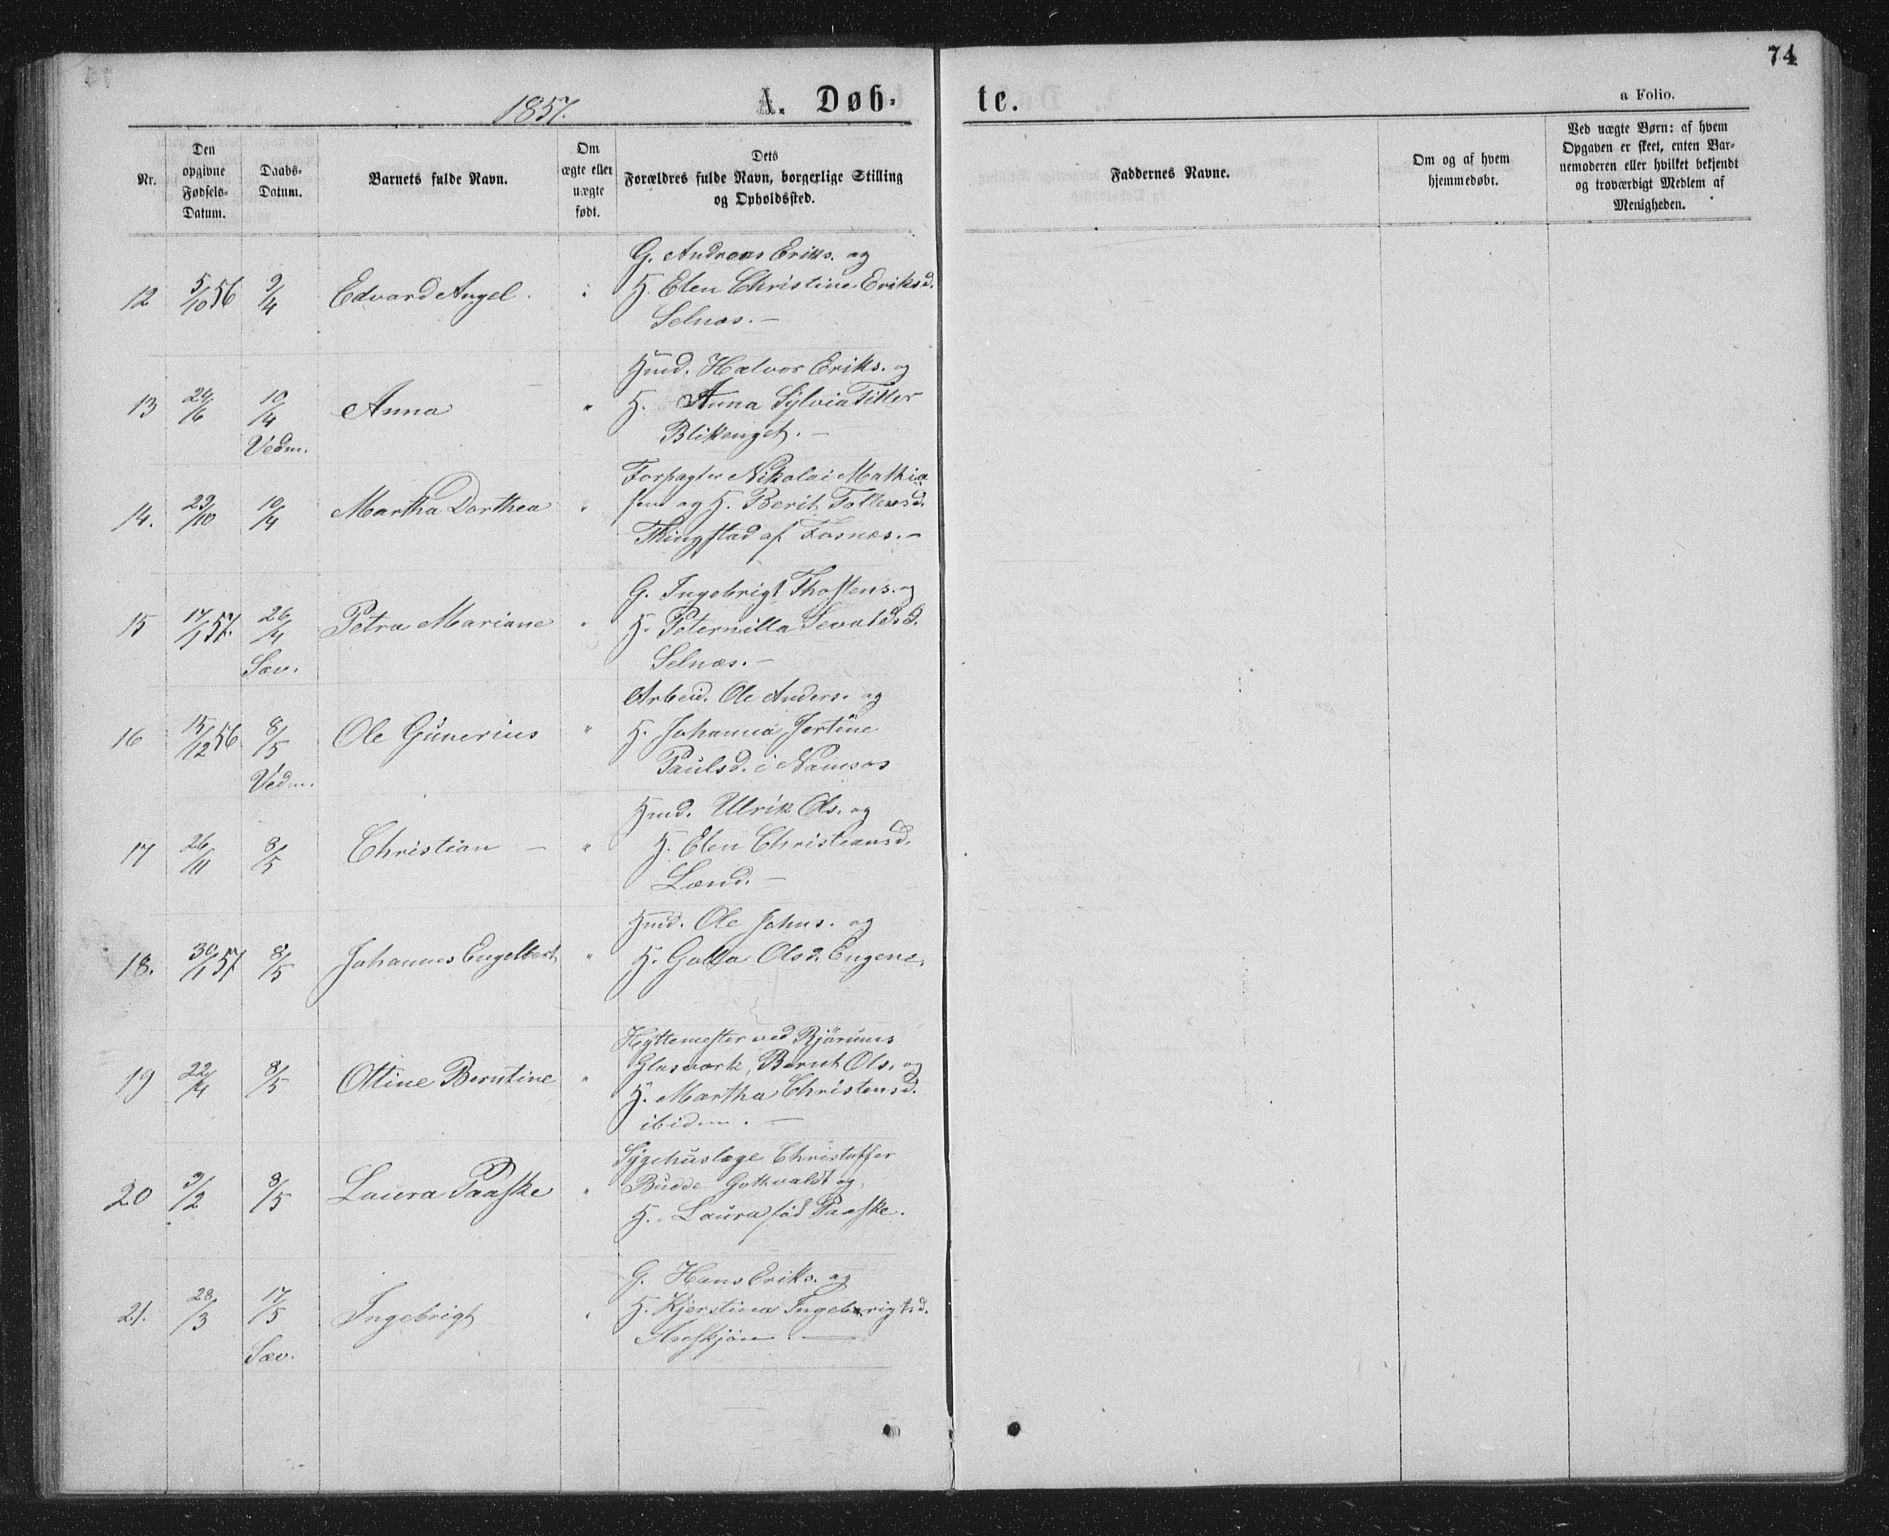 74
1857.
A. Døb-
te.
a Folio.
Nr.
Den
opgivne
Fødsels-
Datum.
Daabs-
Datum.
Barnets fulde Navn.
Om
ægte eller
uægte
født.
Dets
Forældres fulde Navn, borgerlige Stilling
og Opholdssted.
Faddernes Navne.
Om og af hvem
hjemmedøbt.
Ved uægte Børn: af hvem
Opgaven er skeet, enten Bar-
nemoderen eller hvilket bekjendt
og troværdigt Medlem af
Menigheden.
G. Andreas Eriks. og
12 5/10 56 9/4 Edvard Angel. H. Elen Christine Eriksd.
Selnæs. —
Hmd. Halvor Eriks. og
13 24/6 10/4 Anna " H. Anna Sylvia Tiller
Vedm. Blikenget. —
Forpagter Nikolai Mathia
14. 23/10 10/4 Martha Dorthea " sen og H. Berit Tollevsd.
Thingstad af Fosnæs. —
G. Ingebrigt Thostens. og
15 17/1 57. 26/4 Petra Mariane " H. Peternilla Sevaldsd.
Sæv. Selnæs. —
Arbeid. Ole Anders. og
16 15/12 56 8/5 Ole Gunerius " H. Johanna Jertine
Vedm. Paulsd. i Namsos
Hmd. Ulrik Ols. og
17 26/11 8/5 Christian — " H. Elen Christiansd.
Lænd. —
Hmd. Ole Johns. og
18. 30/1 57 8/5 Johannes Engelbert " H. Golla Olsd. Engene.
Hyttemester ved Bjørums
19 22/4 8/5 Ottine Berntine " Glasværk, Bernt Ols. og
H. Martha Christensd.
ibidem. —
Sygehuslæge Christoffer
20 3/2 8/5 Laura Paaske " Budde Gothvaldt og
H. Laura fød Paaske.
G. Hans Eriks. og
21. 28/3 17/5 Ingebrigt " H. Kjerstina Ingebrigtsd.
Sæv. —